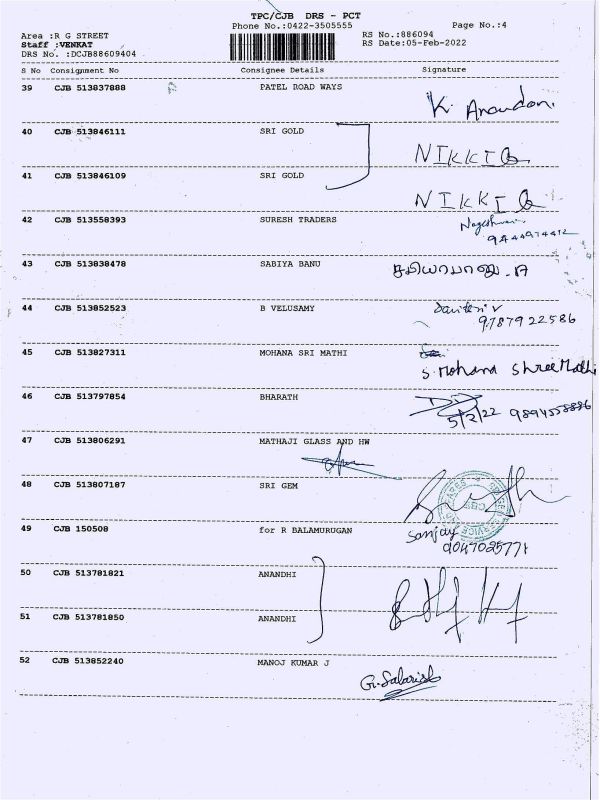 TPC/CJB DRS - PCT
Phone No.:0422-3505555
Page No.:4
Area :R G STREET
Staff :VENKAT
DRS No. :DCJB88609404
RS No.:886094
RS Date:05-Feb-2022
S No Consignment No Consignee Details Signature
39 CJB 513837888 PATEL ROAD WAYS
K.
40 CJB 513846111 SRI GOLD
NIKKI
41 CJB 513846109 SRI GOLD
NIKKI
42 CJB 513558393 SURESH TRADERS
43 CJB 513838478 SABIYA BANU
சபியாபானு .A
44 CJB 513852523 B VELUSAMY
9787922586
45 CJB 513827311 MOHANA SRI MATHI
S. Mohana Shree Mathi
46 CJB 513797854 BHARATH
5/2/22
47 CJB 513806291 MATHAJI GLASS AND HW
48 CJB 513807187 SRI GEM
49 CJB 150508 for R BALAMURUGAN
Sanjay
50 CJB 513781821 ANANDHI
51 CJB 513781850 ANANDHI
52 CJB 513852240 MANOJ KUMAR J